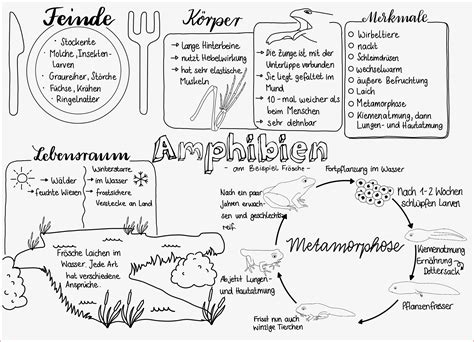 Feinde
• Stockente
• Molche, Insekten-
Larven
• Graureiher, Störche
• Füchse, Krähen
• Ringelnatter
Körper
→ Lange Hinterbeine
→ nutzt Hebelwirkung
→ hat sehr elastische
Muskeln
→ Die Zunge ist mit der
Unterlippe verbunden
→ Sie liegt gefaltet im
Mund
→ 10-mal weicher als
beim Menschen
→ sehr dehnbar
Merkmale
□ Wirbeltiere
□ nackt
□ Schleimdrüsen
□ wechselwarm
□ äußere Befruchtung
□ Laich
□ Metamorphose
□ Kiemenatmung, dann
Lungen- und Hautatmung
Amphibien
- am Beispiel Frösche -
Lebensraum
→ Wälder
→ feuchte Wiesen
Winterstarre
→ im Wasser
→ frostsichere
Verstecke an Land
Frösche laichen im
Wasser. Jede Art
hat verschiedene
Ansprüche.
Metamorphose
Fortpflanzung im Wasser
Nach 1-2 Wochen
schlüpfen Larven
Kiemenatmung
Ernährung =
Dottersack
Pflanzenfresser
Frisst nun auch
winzige Tierchen
Ab jetzt Lungen-
und Hautatmung
Nach ein paar
Jahren erwach-
sen und
geschlechts-
reif.